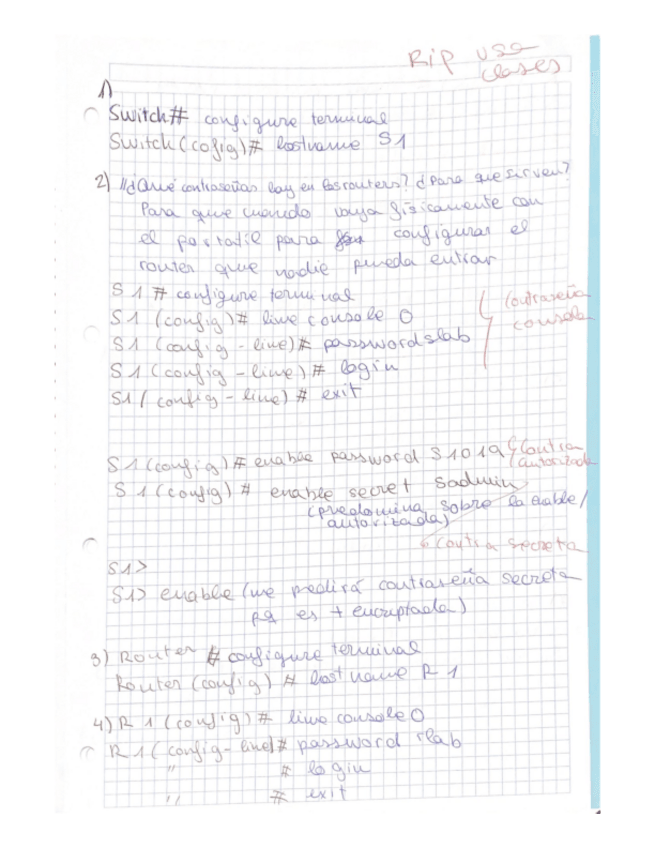 Rip usa
clases
1)
Switch# configure terminal
Switch(cofig)# hostname S1
2) ¿Qué contraseñas hay en los routers? ¿Para que sirven?
Para que cuando vaya físicamente con
el portatil para configurar el
router que nadie pueda entrar
S1# configure terminal
S1 (config)# line console 0
S1 (config-line)# password slab
S1 (config-line)# login
S1 (config-line)# exit
Contraseña
consola
S1(config)# enable password S1019
Contra
autorizada
S1(config)# enable secret Sadmin
(predomina sobre la enable/
autorizada)
Contra secreta
S1>
S1> enable (me pedirá contraseña secreta
pq es + encriptada)
3) Router # configure terminal
Router (config) # hostname R1
4) R1 (config)# line console 0
R1 (config-line)# password rlab
" # login
" # exit